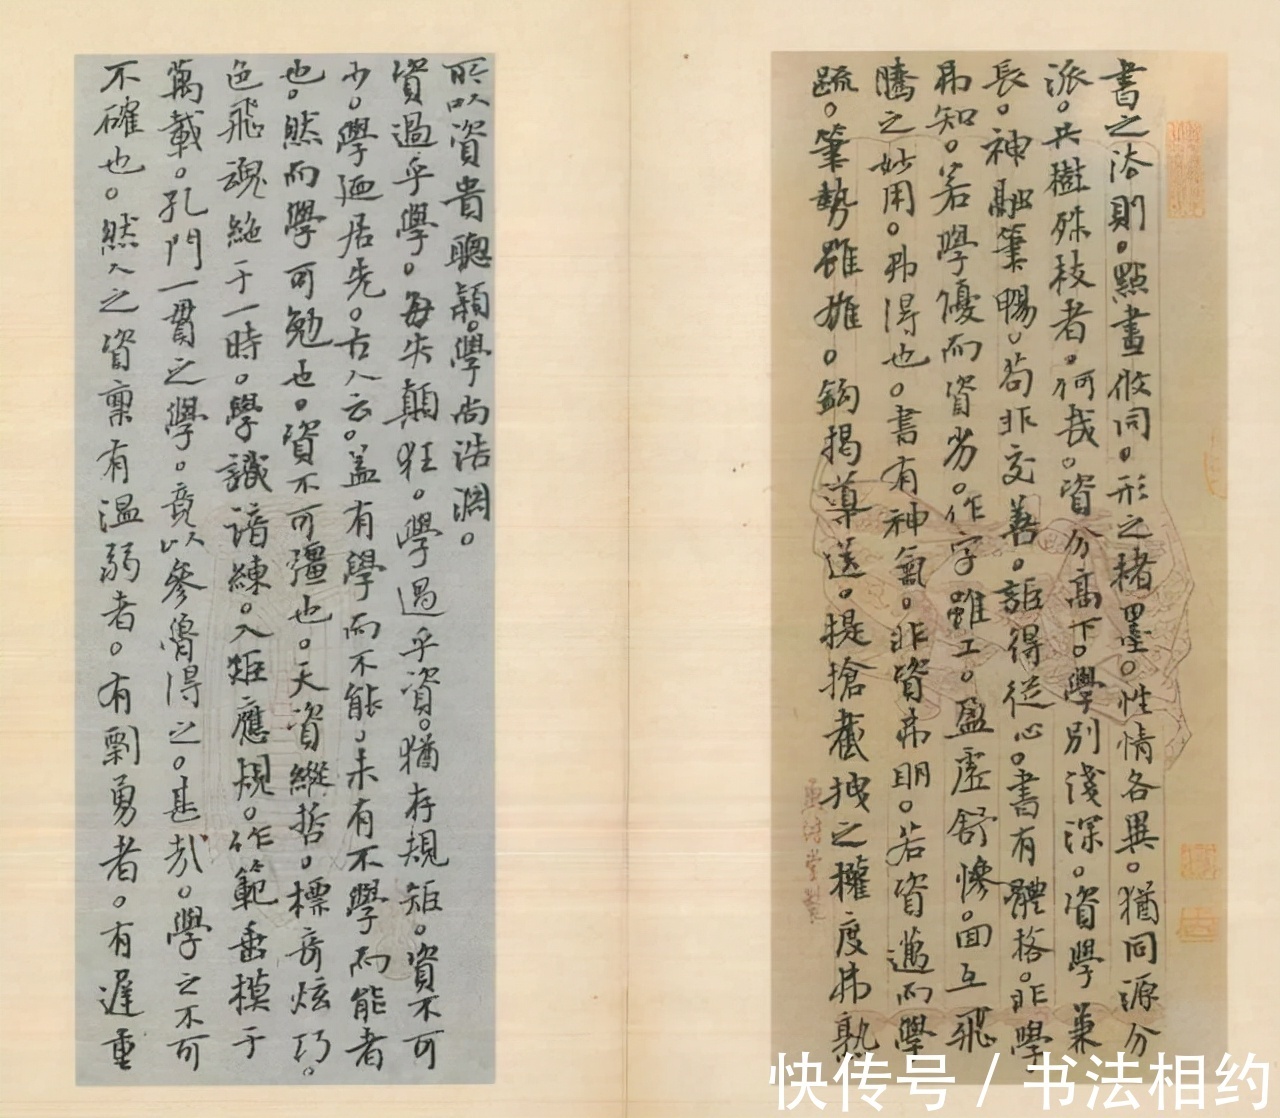 書之法則。點畫攸同。形之楮墨。性情各異。猶同源分
派。共樹殊枝者。何哉。資分高下。學別淺深。資學兼
長。神融筆暢。苟非交善。詎得從心。書有體格。非學
弗知。若學優而資劣。作字雖工。盈虛舒慘。回互飛
騰之妙用。弗得也。書有神氣。非資弗明。若資邁而學
疏。筆勢雖雄。鉤揭導送。提搶截拽之權度弗熟
所以資貴聰穎。學尚浩淵。
資過乎學。每失顛狂。學過乎資。猶存規矩。資不可
少。學迺居先。古人云。蓋有學而不能。未有不學而能者
也。然而學可勉也。資不可彊也。天資縱哲。標奇炫巧。
色飛魂絕于一時。學識諳練。入矩應規。作範垂模于
萬載。孔門一貫之學。竟以參魯得之。甚哉。學之不可
不確也。然人之資稟有溫弱者。有剽勇者。有遲重
快传号 / 书法相约